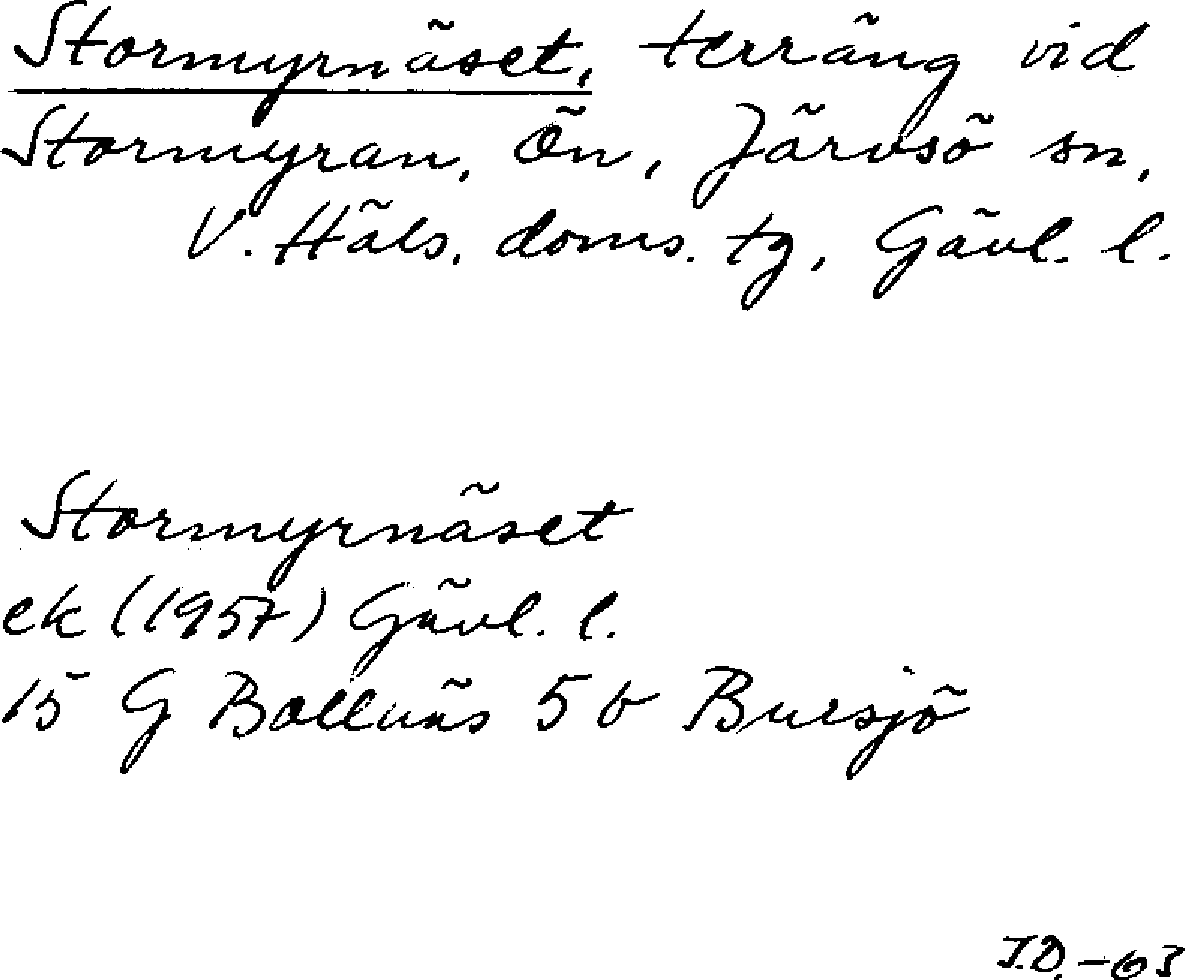 Stormyrnäset, terräng vid
Stormyran, Ön, Järvsö sn,
V. Häls. doms. tg, Gävl. l.
Stormyrnäset
ek (1957) Gävl. l.
15 G Bollnäs 5 b Bursjö
J.D. -63